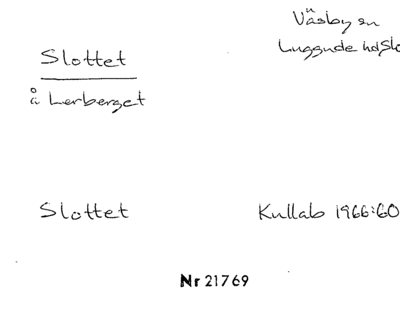 Väsby sn
Slottet
Luggude hd
å Lerberget
Slottet
Kullab 1966:60
Nr 21769